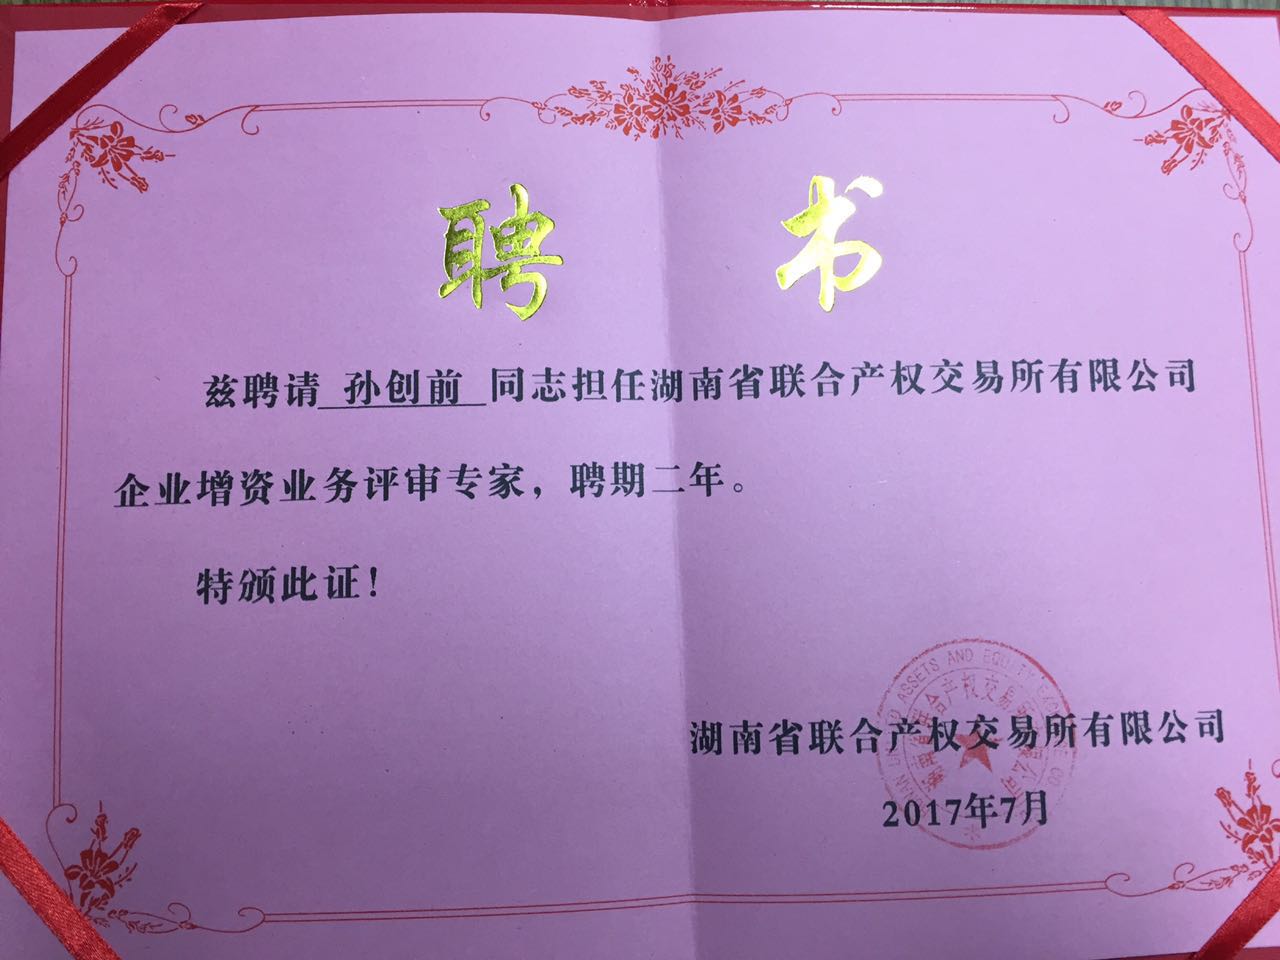 聘书
兹聘请 孙创前 同志担任湖南省联合产权交易所有限公司
企业增资业务评审专家，聘期二年。
特颁此证！
ASSETS AND EQUITY
湖南省联合产权交易所有限公司
湖南省联合产权交易所有限公司
2017年7月